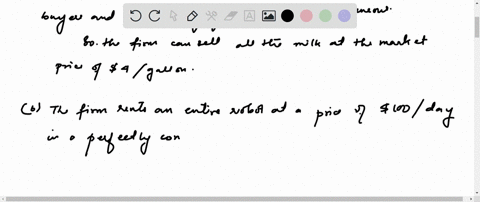 buyer and
So. the firm can sell all the milk at the market
price of $4/gallon.
(b) The firm rents an entire robot at a price of $100/day
in a perfectly con